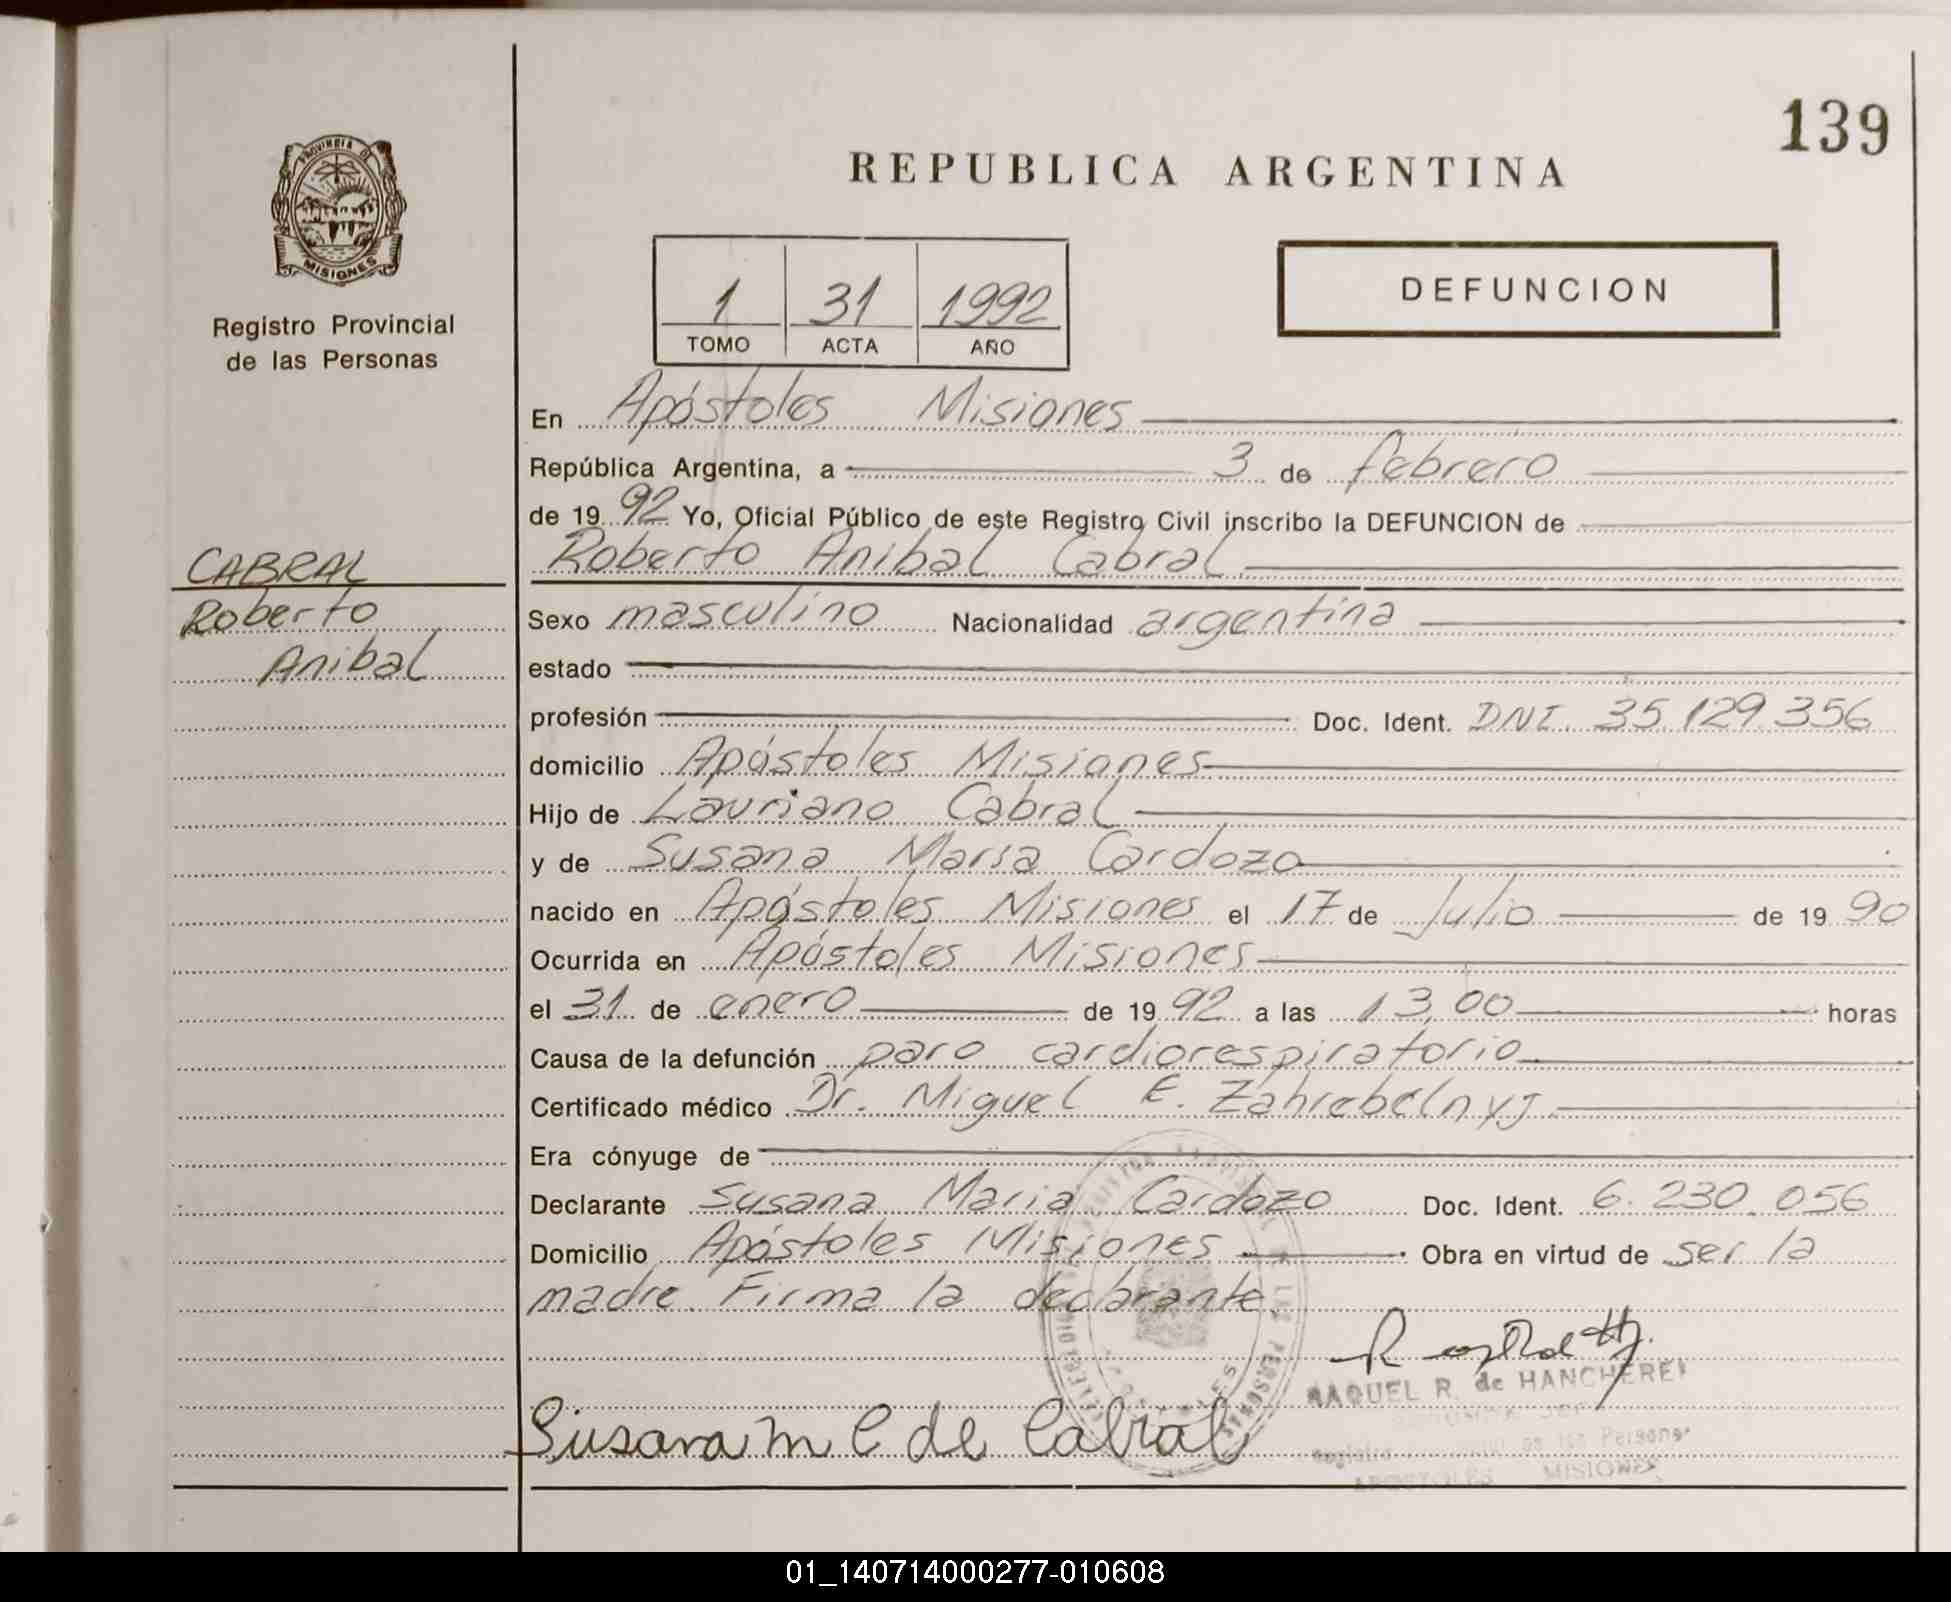 139
REPUBLICA ARGENTINA
PROVINCIA DE
MISIONES
Registro Provincial
de las Personas
1 31 1992
TOMO ACTA AÑO
DEFUNCION
En Apóstoles Misiones
República Argentina, a 3 de febrero
de 1992 Yo, Oficial Público de este Registro Civil inscribo la DEFUNCION de
Roberto Anibal Cabral
CABRAL
Roberto
Anibal
Sexo masculino Nacionalidad argentina
estado
profesión Doc. Ident. DNI. 35.129.356
domicilio Apóstoles Misiones
Hijo de Lauriano Cabral
y de Susana María Cardozo
nacido en Apóstoles Misiones el 17 de Julio de 1990
Ocurrida en Apóstoles Misiones
el 31 de enero de 1992 a las 13,00 horas
Causa de la defunción paro cardiorespiratorio
Certificado médico Dr. Miguel E. Zahrebelnyj
Era cónyuge de
Declarante Susana Maria Cardozo Doc. Ident. 6.230.056
Domicilio Apóstoles Misiones Obra en virtud de ser la
madre. Firma la declarante.
RAQUEL R. de HANCHEREI
de las Personas
APOSTOLES MISIONES
Susana M C de Cabral
01_140714000277-010608